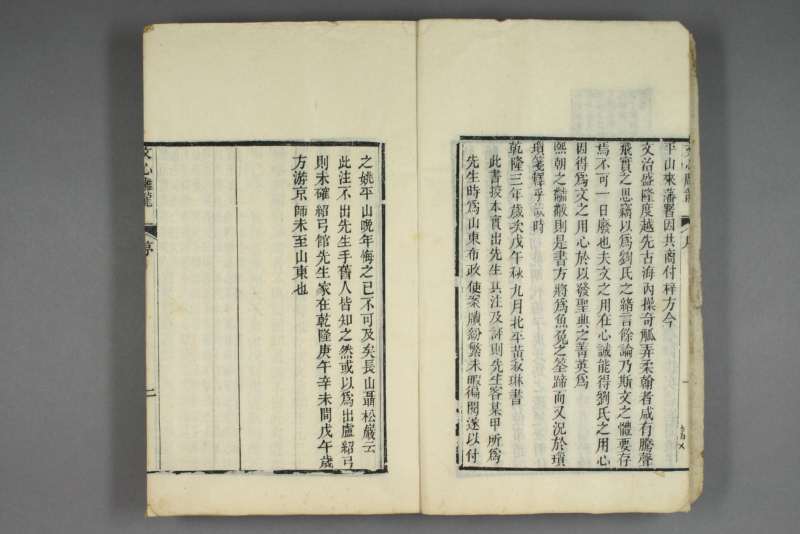 平山來藩署因共商付梓方今
文治盛隆度越先古海內操奇觚弄柔翰者咸有騰聲
飛實之思竊以爲劉氏之緒言餘論乃斯文之體要存
焉不可一日廢也夫文之用在心誠能得劉氏之用心
因得爲文之用心於以發聖典之菁英爲
熙朝之黼黻則是書方將爲魚兔之筌蹄而又況於瑣
瑣箋釋乎哉時
乾隆三年歲次戊午秋九月北平黃叔琳書
此書校本實出先生其注及評則先生客某甲所爲
先生時爲山東布政使案牘紛繁未暇徧閱遂以付
之姚平山晚年悔之已不可及矣長山聶松巖云
此注不出先生手舊人皆知之然或以爲出盧紹弓
則未確紹弓館先生家在乾隆庚午辛未間戊午歲
方游京師未至山東也
文心雕龍
序
二